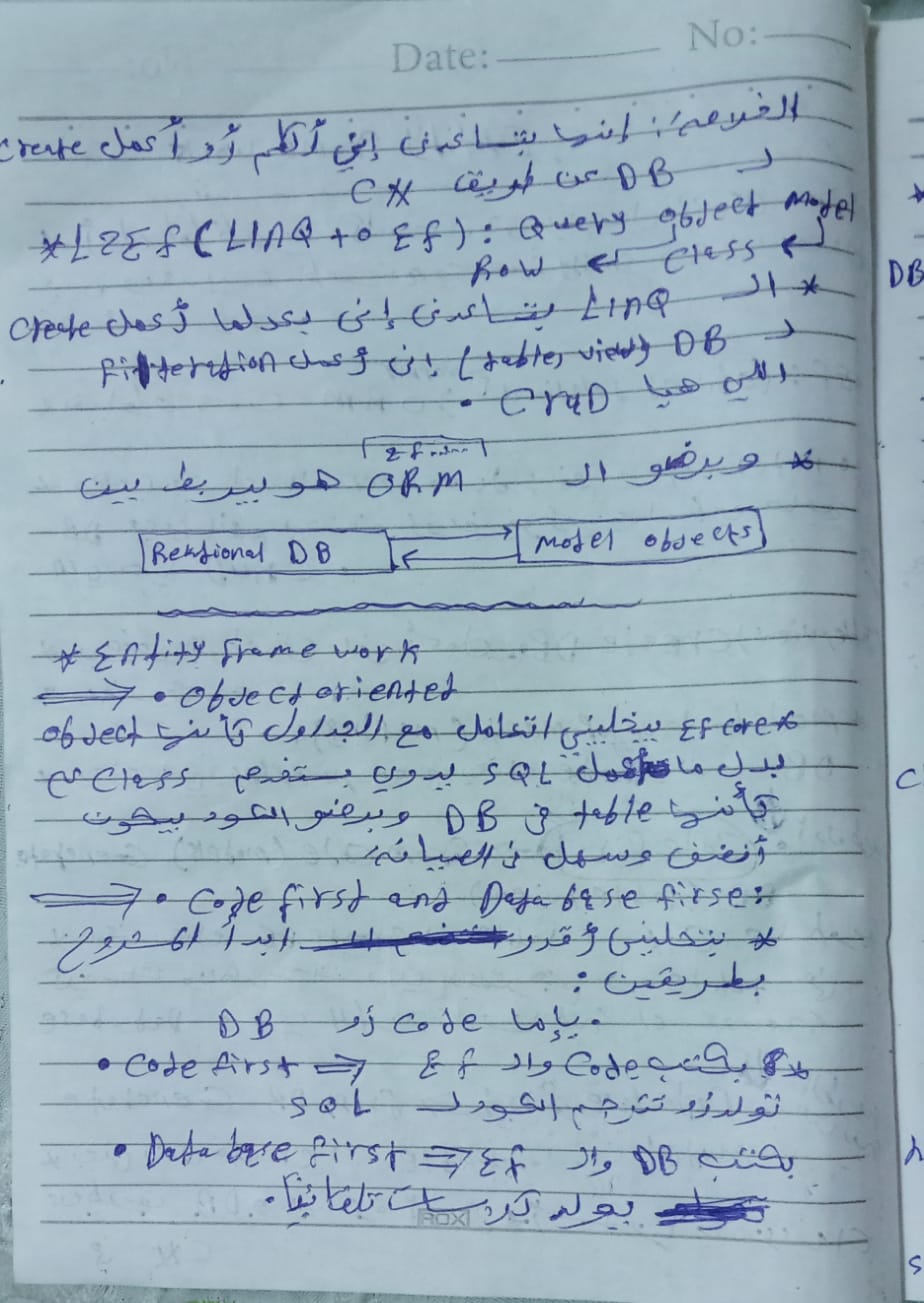 Date: No:
الخلاصة: إنها بتساعدني إني أتكلم أو أعمل create
لـ DB عن طريق C#
* L2Ef (LINQ to Ef): Query object Model
Row ← Class ←
* الـ LINQ بتساعدني إني بعدما أعمل Create
لـ DB (table, view) إني أعمل Filteration
اللي هيا CRUD.
Ef
* وبرضو الـ ORM هو بيربط بين
Relational DB
Model objects
* Entity frame work
⇒ • Object oriented
* Ef core بيخليني اتعامل مع الجداول كأنها object
بدل ما أعمل SQL يدوي بستخدم Class
كأنها table في DB وبرضو الكود بيكون
أنضف وسهل في الصيانة.
⇒ • Code first and Data base firse:
* بتخليني أقدر ابدأ المشروع
بطريقين:
• يإما Code أو DB
• Code first ⇒ بكتب Code والـ Ef
تولد أو تترجم الكود لـ SQL
• Data base first ⇒ بكتب DB والـ Ef
يولد كلاسات تلقائيًا.
ROX
DB
C
S